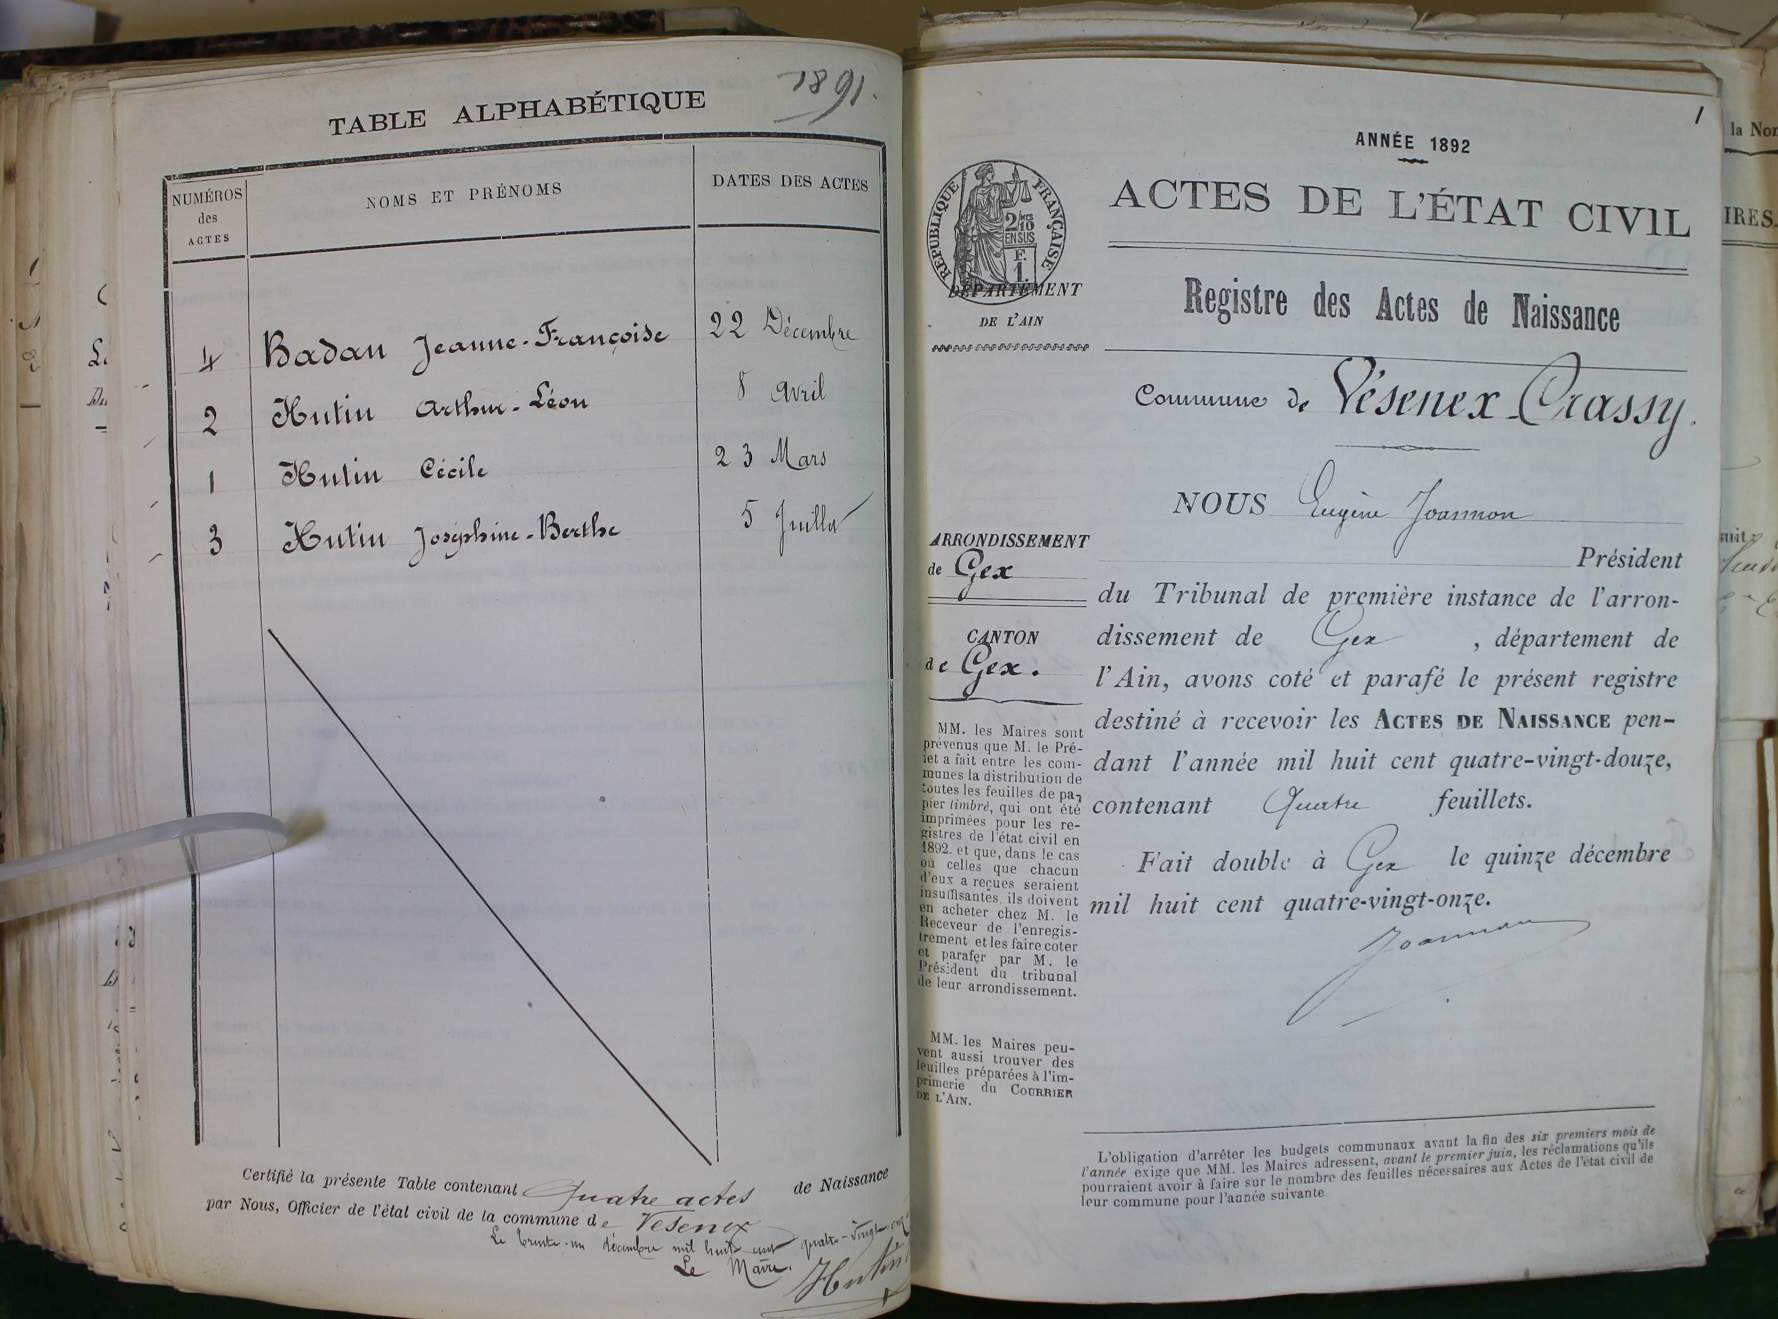 1891.
TABLE ALPHABÉTIQUE
NUMÉROS des ACTES
NOMS ET PRÉNOMS
DATES DES ACTES
4 Badan Jeanne-Françoise 22 Décembre
2 Hutin Arthur-Léon 8 Avril
1 Hutin Cécile 23 Mars
3 Hutin Joséphine-Berthe 5 Juillet
Certifié la présente Table contenant Quatre actes de Naissance
par Nous, Officier de l'état civil de la commune de Vesenex
Le trente-un décembre mil huit cent quatre-vingt-onze
Le Maire.
Hutin
1
ANNÉE 1892
ACTES DE L'ÉTAT CIVIL
RÉPUBLIQUE FRANÇAISE
2/10 EN SUS
F. 1.
DÉPARTEMENT
DE L'AIN
Registre des Actes de Naissance
Commune de Vésenex-Crassy.
NOUS Eugène Joannon
Président
du Tribunal de première instance de l'arron-
dissement de Gex, département de
l'Ain, avons coté et parafé le présent registre
destiné à recevoir les ACTES DE NAISSANCE pen-
dant l'année mil huit cent quatre-vingt-douze,
contenant Quatre feuillets.
Fait double à Gex le quinze décembre
mil huit cent quatre-vingt-onze.
Joannon
ARRONDISSEMENT
de Gex
CANTON
de Gex.
MM. les Maires sont
prévenus que M. le Pré-
fet a fait entre les com-
munes la distribution de
toutes les feuilles de pa-
pier timbré, qui ont été
imprimées pour les re-
gistres de l'état civil en
1892. et que, dans le cas
où celles que chacun
d'eux a reçues seraient
insuffisantes, ils doivent
en acheter chez M. le
Receveur de l'enregis-
trement et les faire coter
et parafer par M. le
Président du tribunal
de leur arrondissement.
MM. les Maires peu-
vent aussi trouver des
feuilles préparées à l'im-
primerie du COURRIER
DE L'AIN.
L'obligation d'arrêter les budgets communaux avant la fin des six premiers mois de
l'année exige que MM. les Maires adressent, avant le premier juin, les réclamations qu'ils
pourraient avoir à faire sur le nombre des feuilles nécessaires aux Actes de l'état civil de
leur commune pour l'année suivante
la Nor
IRES.